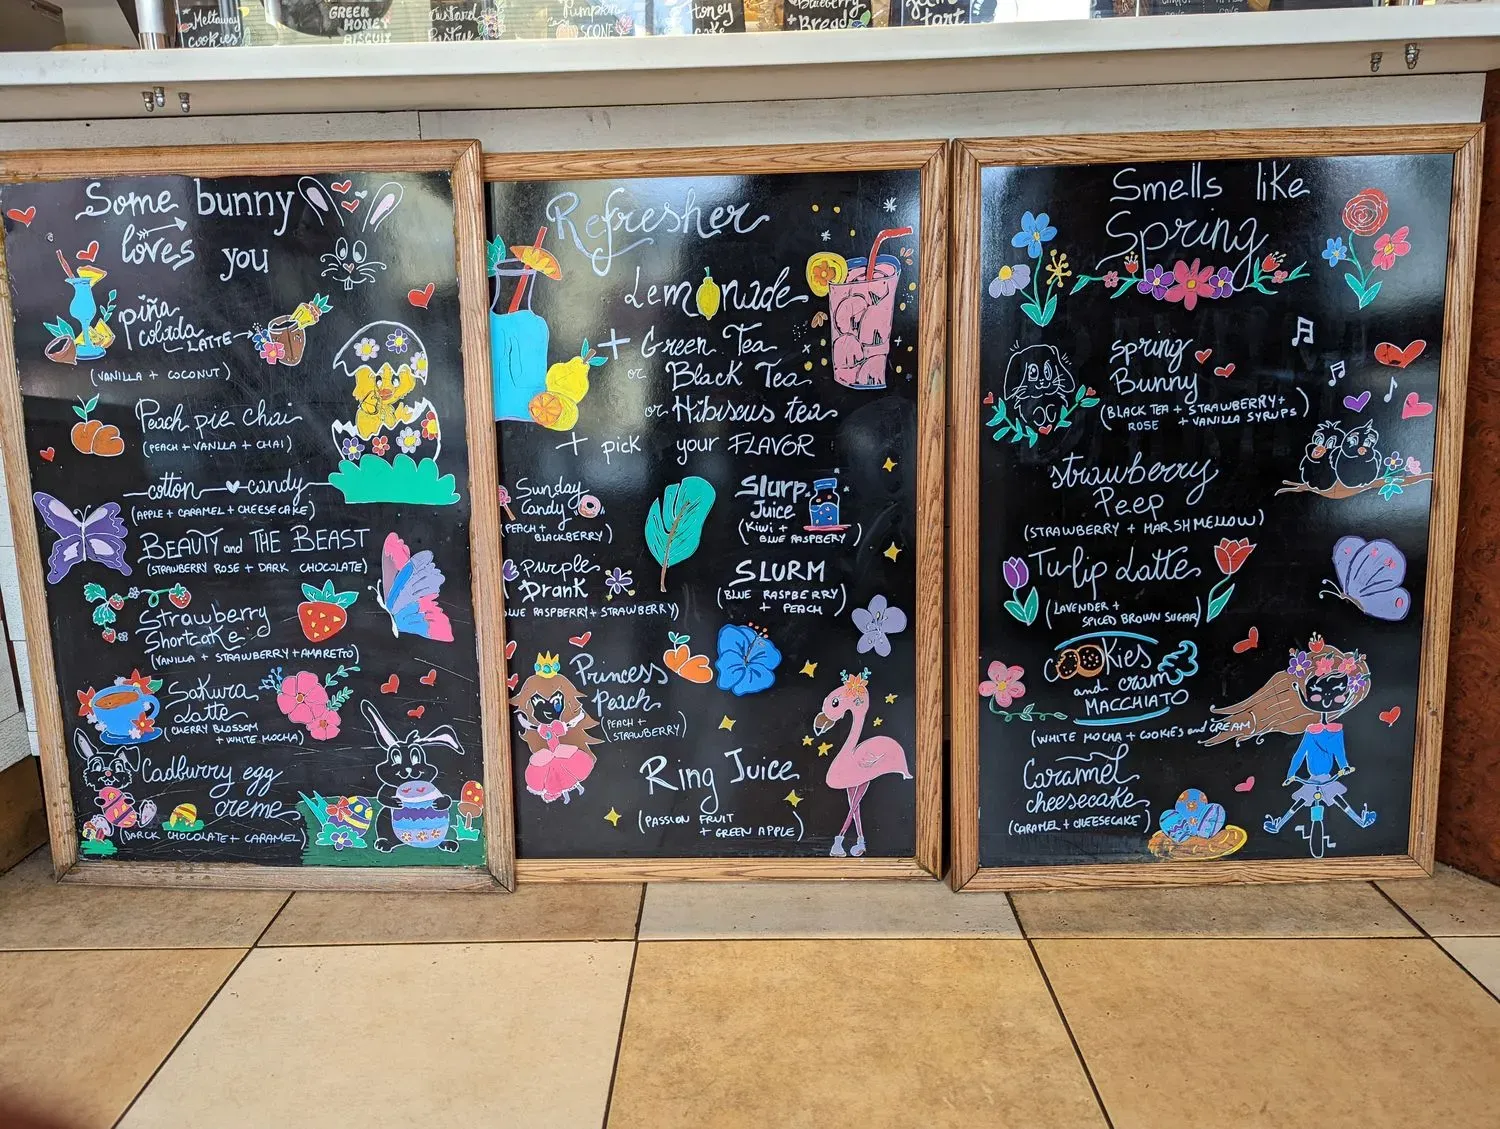 Meltaway
cookies
GREEN
HONEY
BISCUIT
Custard
Pastry
Pumpkin
SCONE
Honey
Cake
Blueberry
Bread
Jam
tart
Some bunny
loves you
piña
colada
LATTE
(VANILLA + COCONUT)
Peach pie chai
(PEACH + VANILLA + CHAI)
cotton candy
(APPLE + CARAMEL + CHEESECAKE)
BEAUTY and THE BEAST
(STRAWBERRY ROSE + DARK CHOCOLATE)
Strawberry
Shortcake
(VANILLA + STRAWBERRY + AMARETTO)
Sakura
Latte
(CHERRY BLOSSOM
+ WHITE MOCHA)
Cadburry egg
creme
(DARCK CHOCOLATE + CARAMEL)
Refresher
Lemonade
+ Green Tea
or Black Tea
or Hibiscus tea
+ pick your FLAVOR
Sunday
Candy
(PEACH +
BLACKBERRY)
Slurp
Juice
(Kiwi +
BLUE RASPBERY)
Purple
Drank
BLUE RASPBERRY + STRAWBERRY)
SLURM
(BLUE RASPBERRY
+ PEACH)
Princess
Peach
(PEACH +
STRAWBERRY)
Ring Juice
(PASSION FRUIT
+ GREEN APPLE)
Smells like
Spring
spring
Bunny
(BLACK TEA + STRAWBERRY +
ROSE + VANILLA SYRUPS)
strawberry
Peep
(STRAWBERRY + MARSHMELLOW)
Tulip Latte
(LAVENDER +
SPICED BROWN SUGAR)
COOKIES
and cream
MACCHIATO
(WHITE MOCHA + COOKIES and CREAM)
Caramel
cheesecake
(CARAMEL + CHEESECAKE)